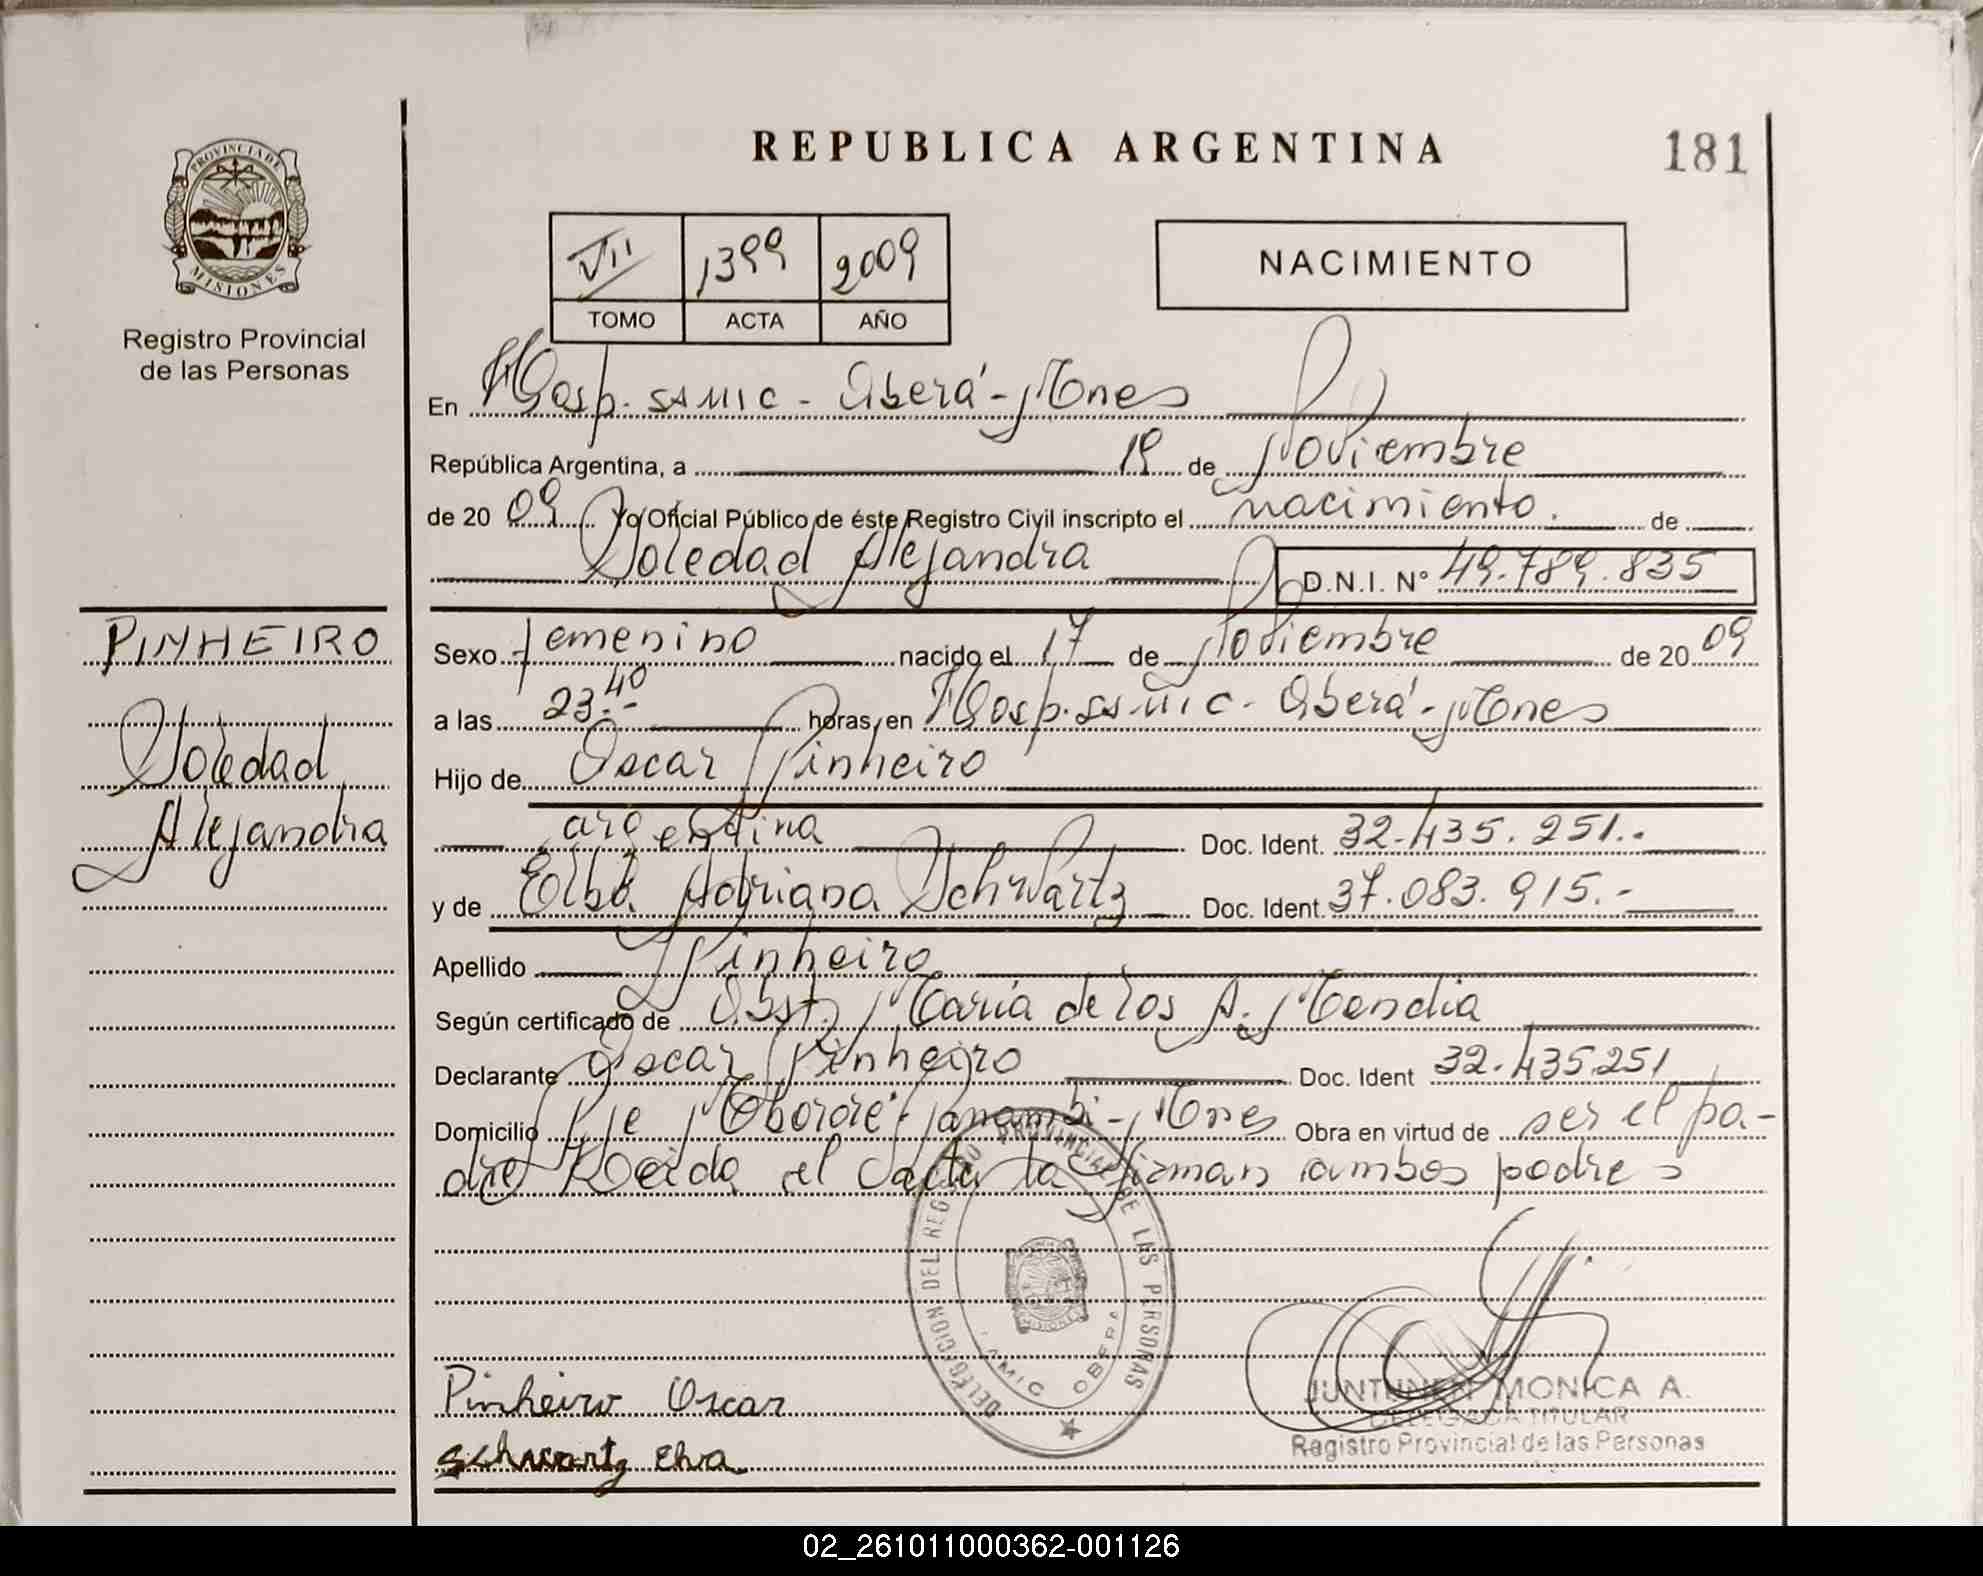 PROVINCIA DE
MISIONES
Registro Provincial
de las Personas
REPUBLICA ARGENTINA
181
VII 1399 2009
TOMO ACTA AÑO
NACIMIENTO
En Hosp. SAMIC - Oberá - Mnes
República Argentina, a 19 de Noviembre
de 2009 Yo Oficial Público de éste Registro Civil inscripto el nacimiento. de
Soledad Alejandra D.N.I. Nº 49.789.835
PINHEIRO
Soledad
Alejandra
Sexo femenino nacido el 17 de Noviembre de 2009
a las 23.40 horas, en Hosp. SAMIC - Oberá - Mnes
Hijo de Oscar Pinheiro
argentina Doc. Ident. 32.435.251.-
y de Elba Adriana Schwartz Doc. Ident. 37.083.915.-
Apellido Pinheiro
Según certificado de Obst. María de los A. Mendia
Declarante Oscar Pinheiro Doc. Ident 32.435251
Domicilio Pje Mbororé - Panambi - Mnes Obra en virtud de ser el pa-
dre Leida el acta la firman ambos padres
DELEGACION DEL REGISTRO PROVINCIAL DE LAS PERSONAS
SAMIC OBERA
MISIONES
Pinheiro Oscar
Schwartz Elva
JUNTUNEN MONICA A.
DELEGADA TITULAR
Registro Provincial de las Personas
02_261011000362-001126